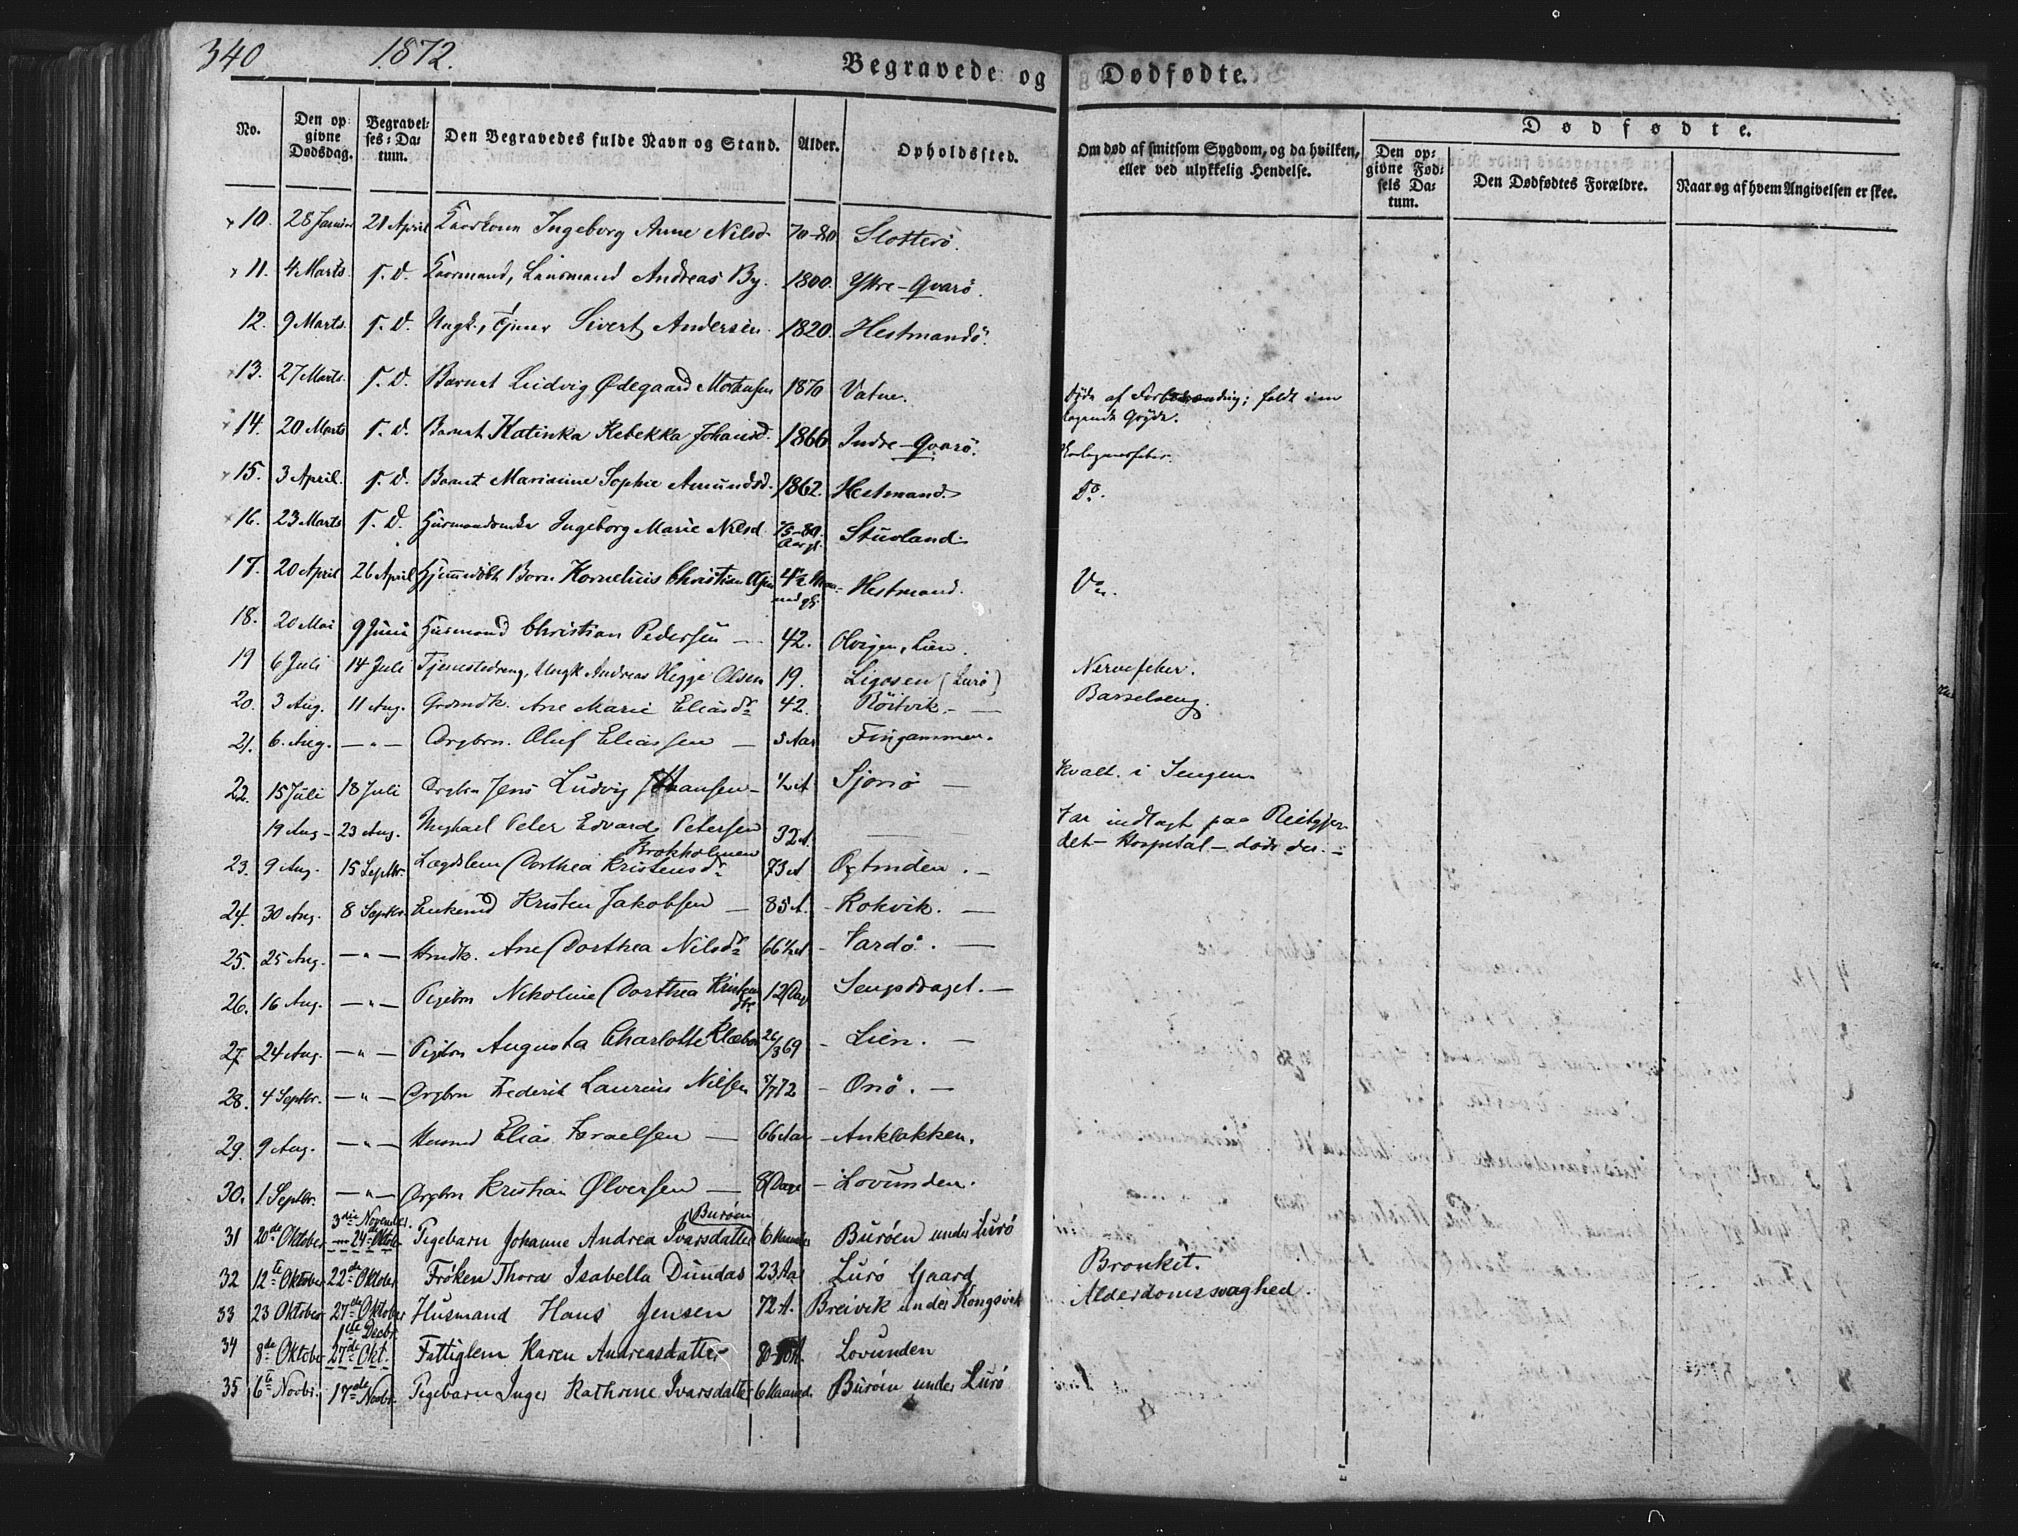 340 1872. Begravede og Dødfødte.
No. Den opgivne Dødsdag. Begravelses-Datum. Den Begravedes fulde Navn og Stand. Alder. Opholdssted. Om død af smitsom Sygdom, og da hvilken, eller ved ulykkelig Hendelse. Dødfødte.
Den opgivne Fødsels Datum. Den Dødfødtes Forældre. Naar og af hvem Angivelsen er skee.
10. 28 Januar 21 April Ingeborg Anne Nilsd. 70-80 Slotterø.
11. 4 Marts. s. D. Kaarmand, Lensmand Andreas By. 1800. Ytre-Qvarø.
12. 9 Marts. s. D. Ungk., Tjener Sivert Andersen 1820. Hestmandö.
13. 27 Marts. s. D. Barnet Ludvig Ødegaard 1870 Vatne. Døde af Forbrænding; faldt i en
kogende Gryde.
14. 20 Marts s. D. Barnet Katinka Rebekka Johansd. 1866 Indre-Qvarø.
15. 3 April. s. D. Barnet Marianne Sophie Amundsd. 1862. Hestmand. Do.
16. 23 Marts s. D. Ingeborg Marie Nilsd. 75-80 Aar gl. Stuvland.
17. 20 April 26 April Hjemmedøbt Barn Kornelius Christian 4½ Maaned gl. Hestmand.
18. 20 Mai 9 Juni Husmand Christian Pedersen 42. Olvigen, Lien.
19 6 Juli 14 Juli Tjenestedreng, Ungk Andreas Heggi Olsen 19. Ligosen (Lurø) Nervefeber.
20. 3 Aug. 11 Aug. Grdmdk. Ane Marie Eliasdr 42. Röitvik. — Barselseng.
21. 6. Aug. — " — Drgbrn. Oluf Eliassen — 5 Aar Finganmen.
22. 15 Juli 18 Juli Drgbrn Jens Ludvig Johansen — ½ A Sjonö — Kvalt. i Sengen
19 Aug — 23 Aug. Mighael Peter Edvard Petersen Brokholmen 32 A. — Var indlagt paa Reitgjerdet — Hospital — døde der. —
23. 9 Aug. 15 Septbr. Lægdslem Dorthea Kristensdr 73 A —
24. 30 Aug. 8 Septbr. Enkemd Kristen Jakobsen — 85 A. - Kokvik. —
25. 25 Aug. — " — Ane Dorthea Nilsdr 66½ A - Vardö. —
26. 16 Aug. — " — Pigebrn Nikoline Dorthea Kristensdtr 12 Dage Sengsdraget. —
27. 24 Aug. — " — Pigbrn Augusta Charlotte Klæbo 26/3 69 - Lien. —
28. 4 Septbr. — " — Drgbrn Frederik Laurius Nilsen 5/7 72 - Onö. —
29. 9 Aug. — " — Husmd Elias Israelsen — 66 Aar - Anklakken.
30. 1 Septbr. — " — Drgbrn Kristian Ølversen — 8 Dage - Lovunden.
31 20de Oktober 3die November. 24de Oktob. Pigebarn Johanne Andrea Ivarsdatter Burøen 6 Maaneder Burøen under Lurø
32 12te Oktober 22de Oktober Frøken Thora Isabella Dundas 23 Aar Lurø Gaard Bronkit.
33 23 Oktober 27de Oktober Husmand Hans Jensen 72 A. Breivik under Kongsvik Alderdomssvaghed.
34 8de Oktober 1ste Decbr. 27de Okt. Fattiglem Karen Andreasdatter Lovunden
35 6te Novbr. 17de Novbr. Pigebarn Inger Kathrine Ivarsdatter 6 Maaned. Burøen under Lurø